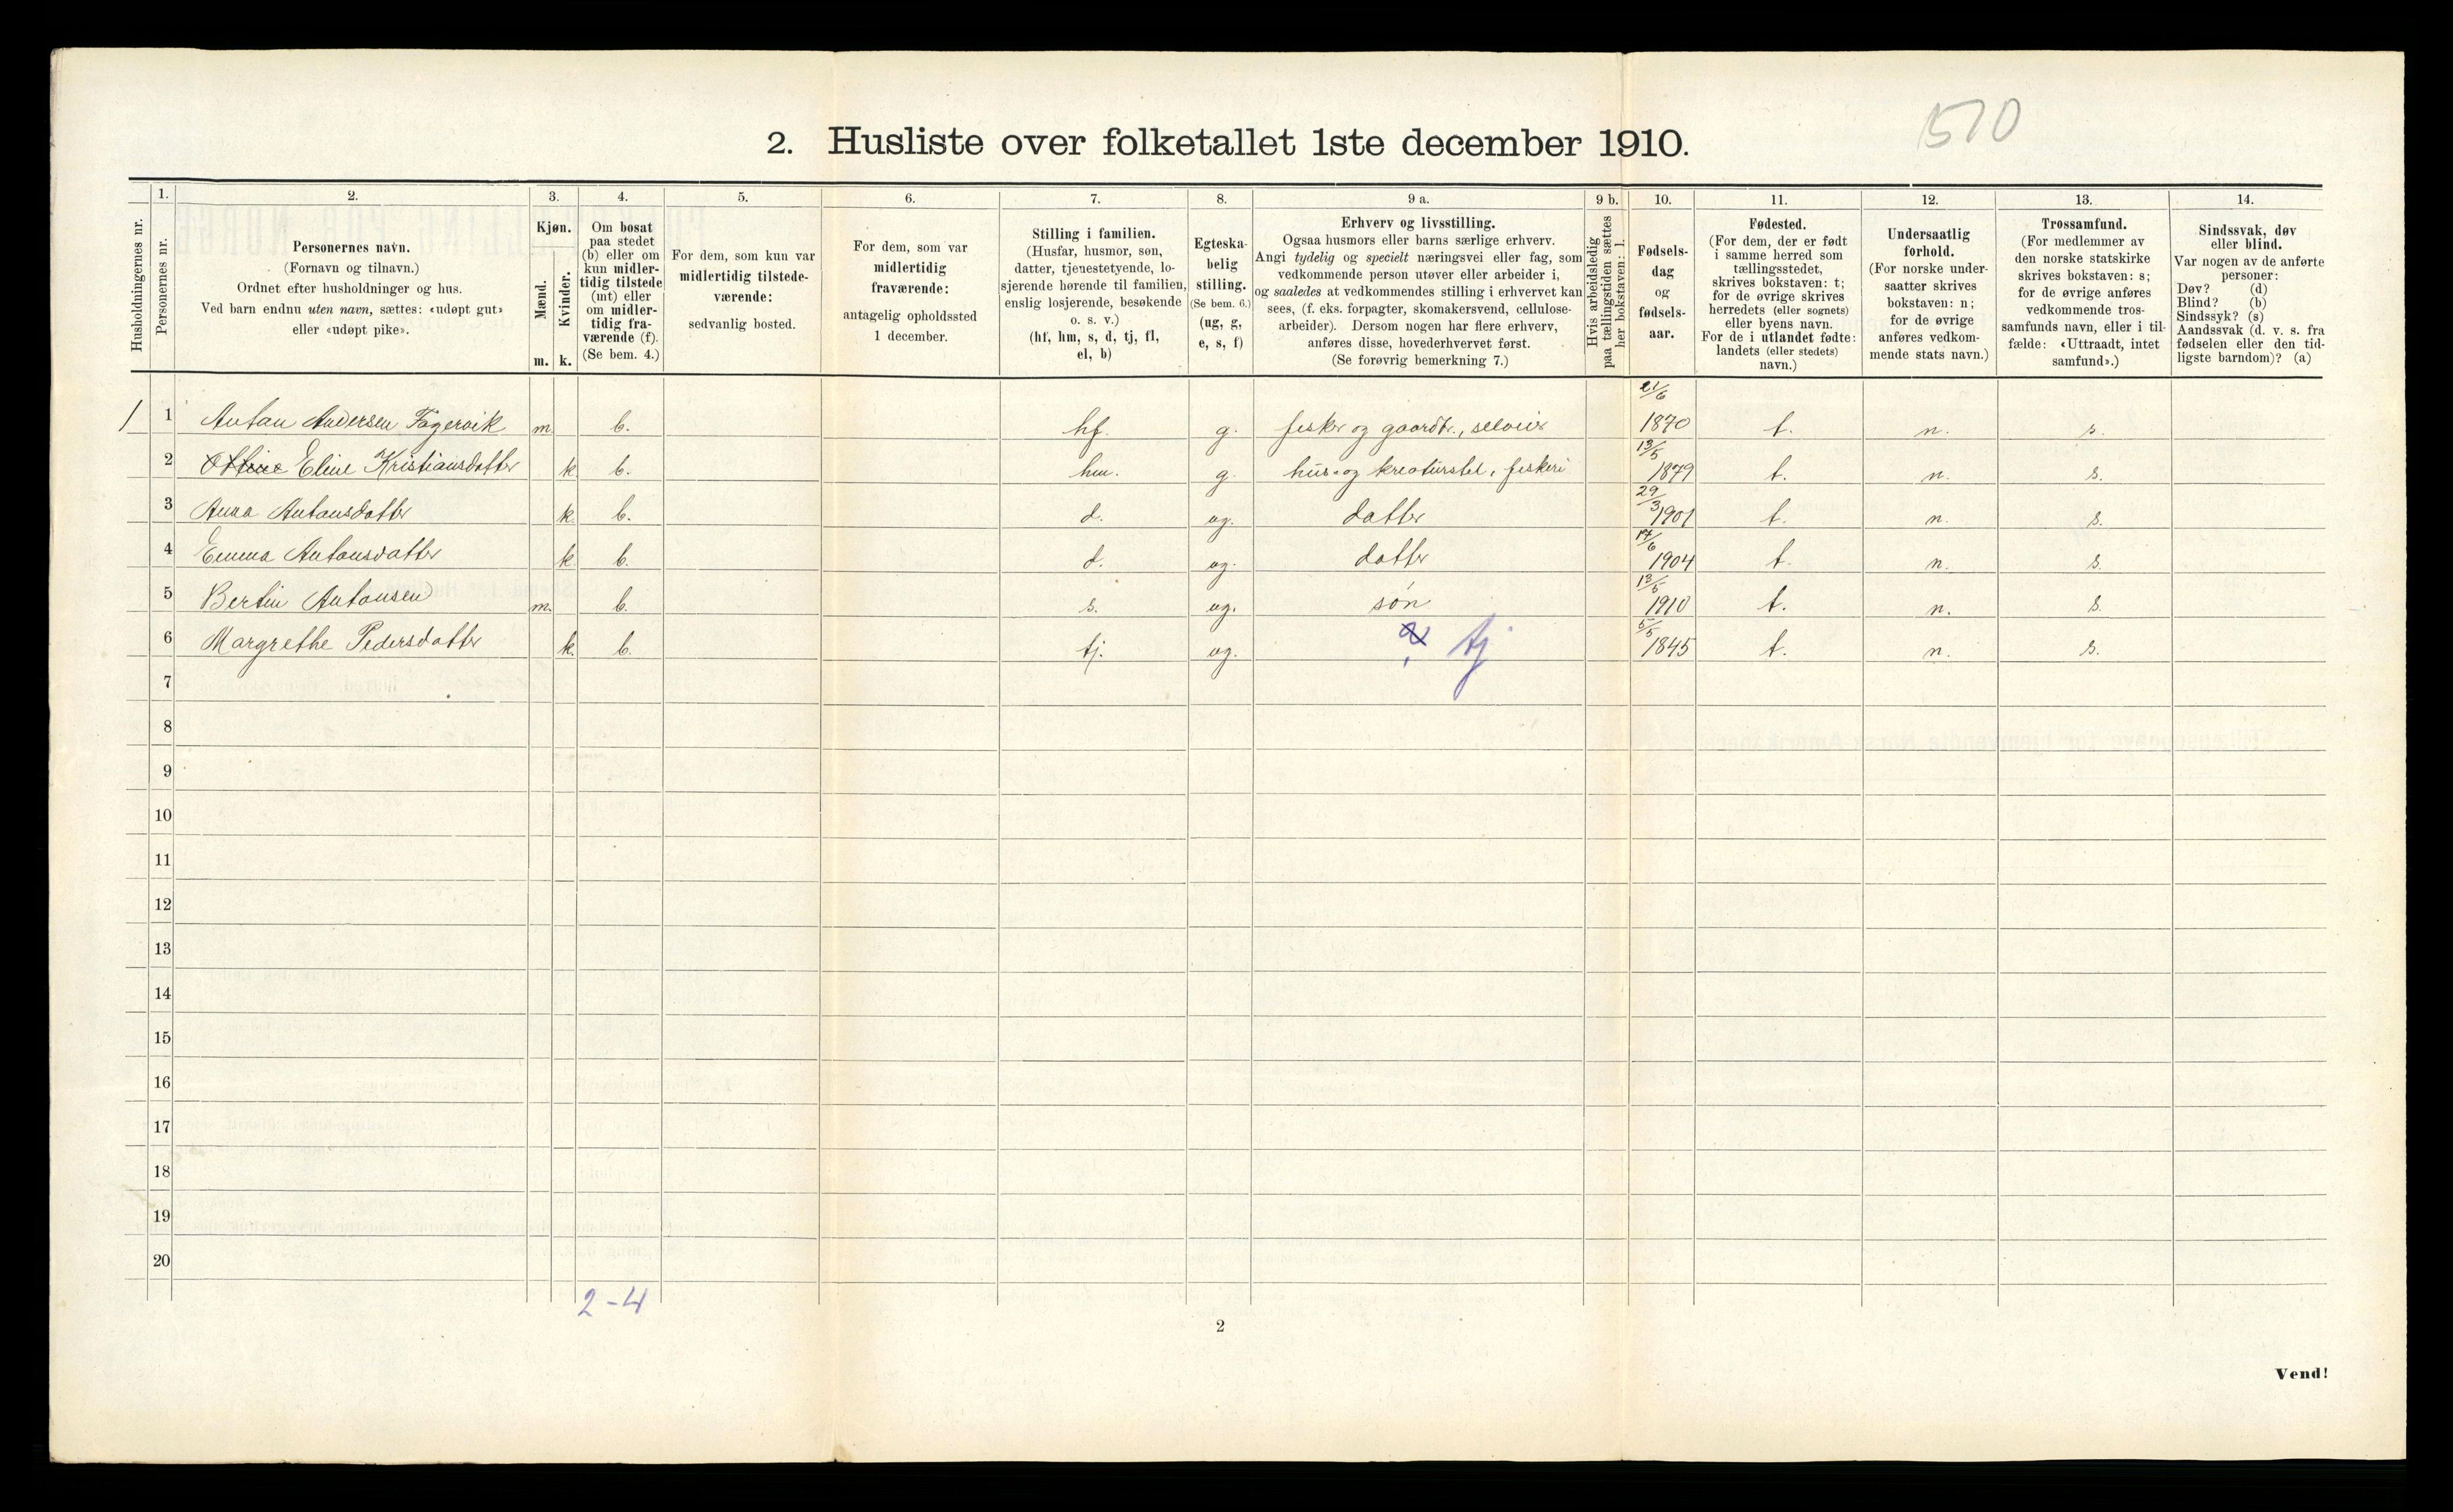 510
2. Husliste over folketallet 1ste december 1910.
Husholdningernes nr.
1.
Personernes nr.
2.
Personernes navn.
(Fornavn og tilnavn.)
Ordnet efter husholdninger og hus.
Ved barn endnu uten navn, sættes: «udøpt gut»
eller «udøpt pike».
3.
Kjøn.
Mænd.
Kvinder.
m. k.
4.
Om bosat
paa stedet
(b) eller om
kun midler-
tidig tilstede
(mt) eller
om midler-
tidig fra-
værende (f).
(Se bem. 4.)
5.
For dem, som kun var
midlertidig tilstede-
værende:
sedvanlig bosted.
6.
For dem, som var
midlertidig
fraværende:
antagelig opholdssted
1 december.
7.
Stilling i familien.
(Husfar, husmor, søn,
datter, tjenestetyende, lo-
sjerende hørende til familien,
enslig losjerende, besøkende
o. s. v.)
(hf, hm, s, d, tj, fl,
el, b)
8.
Egteska-
belig
stilling.
(Se bem. 6.)
(ug, g,
e, s, f)
9 a.
Erhverv og livsstilling.
Ogsaa husmors eller barns særlige erhverv.
Angi tydelig og specielt næringsvei eller fag, som
vedkommende person utøver eller arbeider i,
og saaledes at vedkommendes stilling i erhvervet kan
sees, (f. eks. forpagter, skomakersvend, cellulose-
arbeider). Dersom nogen har flere erhverv,
anføres disse, hovederhvervet først.
(Se forøvrig bemerkning 7.)
9 b.
Hvis arbeidsledig
paa tællingstiden sættes
her bokstaven: l.
10.
Fødsels-
dag
og
fødsels-
aar.
11.
Fødested.
(For dem, der er født
i samme herred som
tællingsstedet,
skrives bokstaven: t;
for de øvrige skrives
herredets (eller sognets)
eller byens navn.
For de i utlandet fødte:
landets (eller stedets)
navn.)
12.
Undersaatlig
forhold.
(For norske under-
saatter skrives
bokstaven: n;
for de øvrige
anføres vedkom-
mende stats navn.)
13.
Trossamfund.
(For medlemmer av
den norske statskirke
skrives bokstaven: s;
for de øvrige anføres
vedkommende tros-
samfunds navn, eller i til-
fælde: «Uttraadt, intet
samfund».)
14.
Sindssvak, døv
eller blind.
Var nogen av de anførte
personer:
Døv? (d)
Blind? (b)
Sindssyk? (s)
Aandssvak (d. v. s. fra
fødselen eller den tid-
ligste barndom)? (a)
1 1 Antan Andersen Fagervik m. b. hf. g. fisker og gaardbr., selveier 21/6 1870 t. n. s.
2 Eline Kristiansdatter k. b. hm. g. hus- og kreaturstel, fiskeri 13/5 1879 t. n. s.
3 Anna Antansdatter k. b. d. ug. datter 29/3 1901 t. n. s.
4 Emma Antansdatter k. b. d. ug. datter 17/6 1904 t. n. s.
5 Bertin Antansen m. b. s. ug. søn 13/5 1910 t. n. s.
6 Margrethe Pedersdatter k. b. tj. ug. tj 5/5 1845 t. n. s.
7
8
9
10
11
12
13
14
15
16
17
18
19
20
2-4
2
Vend!